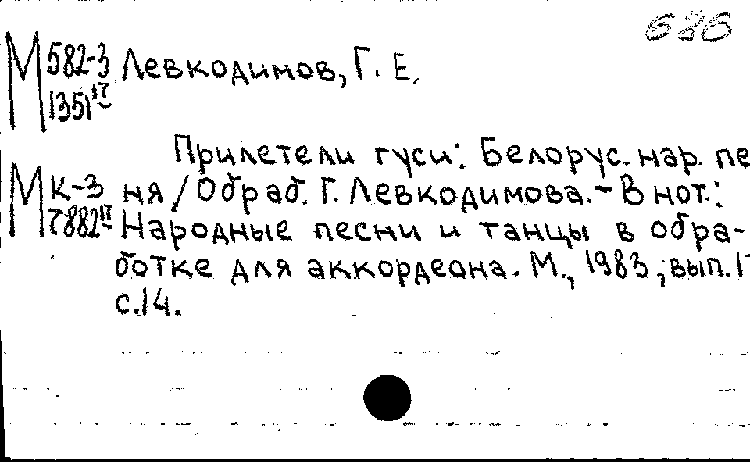 626
М 582-3 Левкодимов, Г. Е.
1351
Прилетели гуси: Белорус. нар. пе
М К-3 ня / Обраб. Г. Левкодимова. - В нот.:
7882 Народные песни и танцы в обра-
ботке для аккордеона. М., 1983, вып. 1
с. 14.